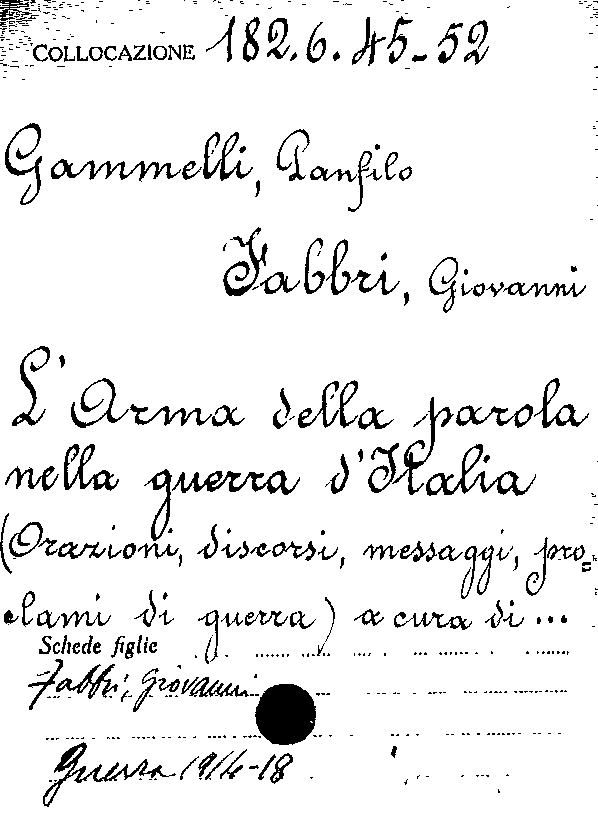 COLLOCAZIONE 182.6.45-52
Gammelli, Panfilo
Fabbri, Giovanni
L'Arma della parola
nella guerra d'Italia
(Orazioni, discorsi, messaggi, pro=
clami di guerra) a cura di...
Schede figlie
Fabbri, Giovanni
Guerra 1914-18